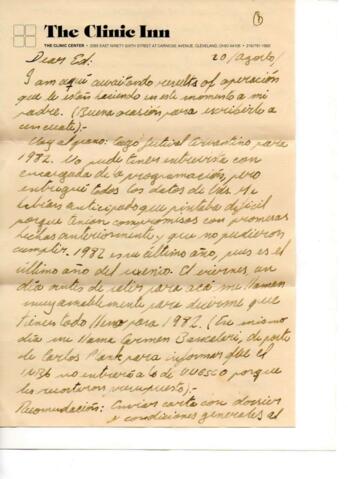 The Clinic Inn
THE CLINIC CENTER • 2065 EAST NINETY-SIXTH STREET AT CARNEGIE AVENUE, CLEVELAND, OHIO 44106 • 216/791-1900
Dear Ed: 20/agosto/
I am aquí awaitando results of operación
que le están haciendo en este momento a mi
padre. (Buena ocasión para escribirte a
un cuate):-
Voy al grano: cagó festival cervantino para
1982. No pude tener entrevista con
encargada de la programación, pero
entregué todos los datos de Uds. Me
habían anticipado que pintaba difícil
porque tenían compromisos con promesas
hechas anteriormente y que no pudieron
cumplir. 1982 es su último año, pues es el
último año del sexenio. El viernes, un
día antes de salir para acá me llaman
muy amablemente para decirme que
tienen todo lleno para 1982. (Ese mismo
día me llama Carmen Barceleri, de parte
de Carlos para informar que el
INBA no entrará a lo de UNESCO porque
les recortaron presupuesto):-
Recomendación: Enviar carta con dossier
y condiciones generales al